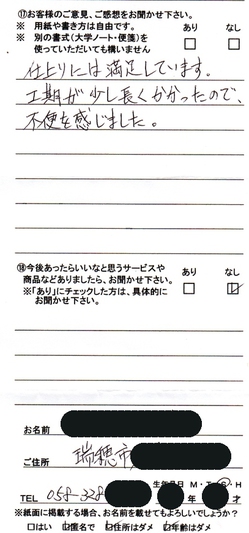 ⑰お客様のご意見、ご感想をお聞かせ下さい。
※ 用紙や書き方は自由です。 あり なし
※ 別の書式(大学ノート・便箋)を
使っていただいても構いません □ □
仕上りには満足しています。
工期が少し長くかかったので、
不便を感じました。
⑱今後あったらいいなと思うサービスや
商品などありましたら、お聞かせ下さい。 あり なし
※「あり」にチェックした方は、具体的に
お聞かせ下さい。 □ ☑
お名前
ご住所 瑞穂市
生年月日 M・T・S・H
TEL 058-328 年 才
※紙面に掲載する場合、お名前を載せてもよろしいでしょうか?
□はい ☑匿名で ☑住所はダメ ☑年齢はダメ